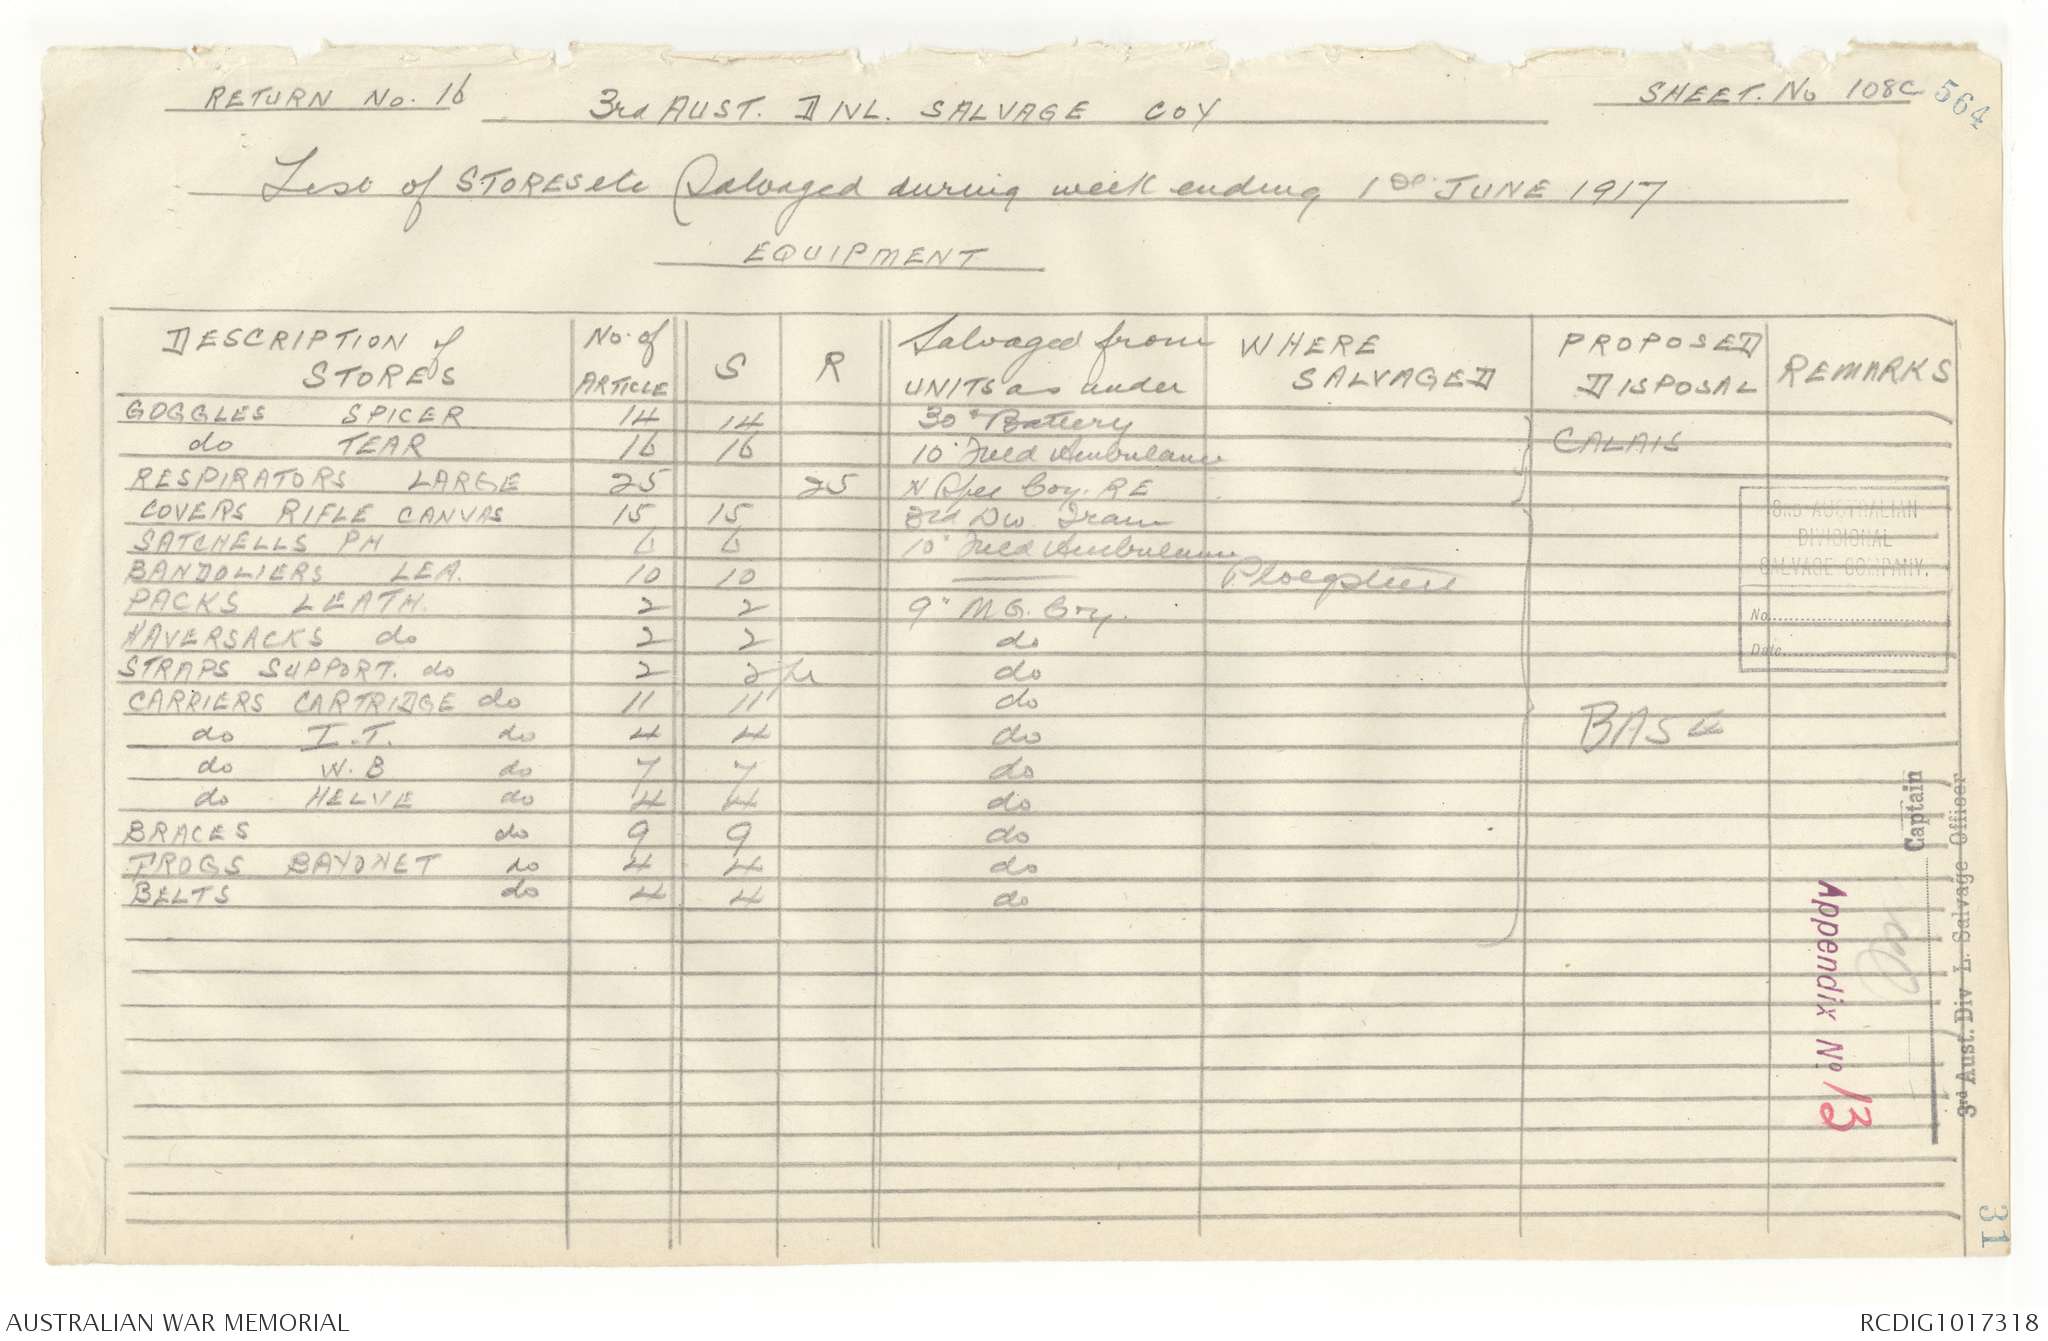 RETURN No. 16 3rd AUST. DIVL. SALVAGE COY SHEET. No 108C 564
List of STORES etc Salvaged during week ending 1st JUNE 1917
EQUIPMENT
DESCRIPTION of STORES No. of ARTICLE S R Salvaged from UNITS as under WHERE SALVAGED PROPOSED DISPOSAL REMARKS
GOGGLES SPICER 14 14 30" Battery
do TEAR 16 16 10" Field Ambulance CALAIS
RESPIRATORS LARGE 25 25 N Spec Coy. RE
COVERS RIFLE CANVAS 15 15 3rd Div. Train
SATCHELLS PH 6 6 10" Field Ambulance
BANDOLIERS LEA. 10 10 Ploegsteert
PACKS LEATH. 2 2 9" M.G. Coy.
HAVERSACKS do 2 2 do
STRAPS SUPPORT. do 2 2 do
CARRIERS CARTRIDGE do 11 11 do
do I.T. do 4 4 do BASE
do W.B do 7 7 do
do HELVE do 4 4 do
BRACES do 9 9 do
FROGS BAYONET do 4 4 do
BELTS do 4 4 do
3RD AUSTRALIAN
DIVISIONAL
SALVAGE COMPANY.
No.
Date
Captain
3rd Aust. Div L. Salvage Officer
Appendix No 13
31
AUSTRALIAN WAR MEMORIAL RCDIG1017318